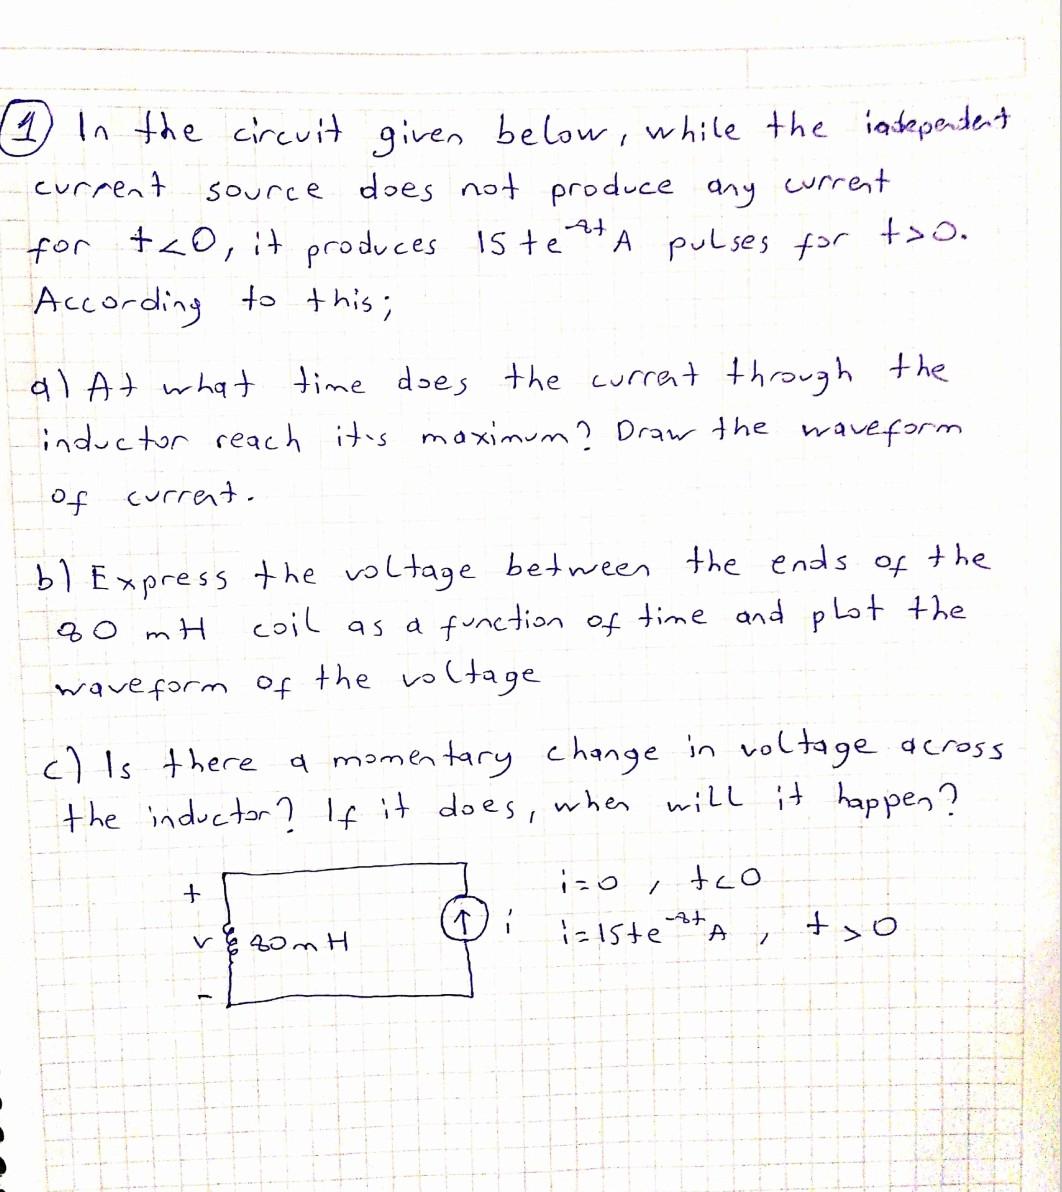 1) In the circuit given below, while the independent
current source does not produce any current
for t<0, it produces 15te^-8t A pulses for t>0.
According to this;
a) At what time does the current through the
inductor reach it's maximum? Draw the waveform
of current.
b) Express the voltage between the ends of the
80 mH coil as a function of time and plot the
waveform of the voltage
c) Is there a momentary change in voltage across
the inductor? If it does, when will it happen?
+ i=0, t<0
v 80mH ↑ i i=15te^-8t A, t>0
-